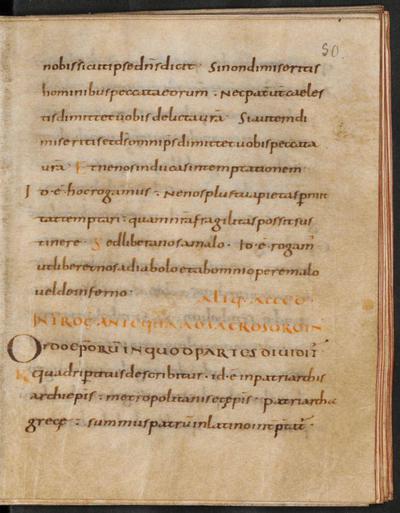 50.
nobis sicut ipse dns dicit. Si non dimiseritis
hominibus peccata eorum. Nec pat ur caeles
tis dimittet uobis delicta ura. Si autem di
miseritis et ds omnips dimittet uobis peccata
ura. Et ne nos inducas in temptationem
Id. e. hoc rogamus. Ne nos plus tua pietas permit
tat temptari. quam nra fragilitas possit sus
tinere. Sed libera nos a malo. Id. e. rogam
ut liberet nos a diabolo et ab omni opere malo
uel de inferno.
Ordo eporu in quod partes diuidit
quadripertitus describitur. id. e in patriarchis
archiepis. metropolitanis et epis. patriarcha
grece. summus patrum in latino intptat